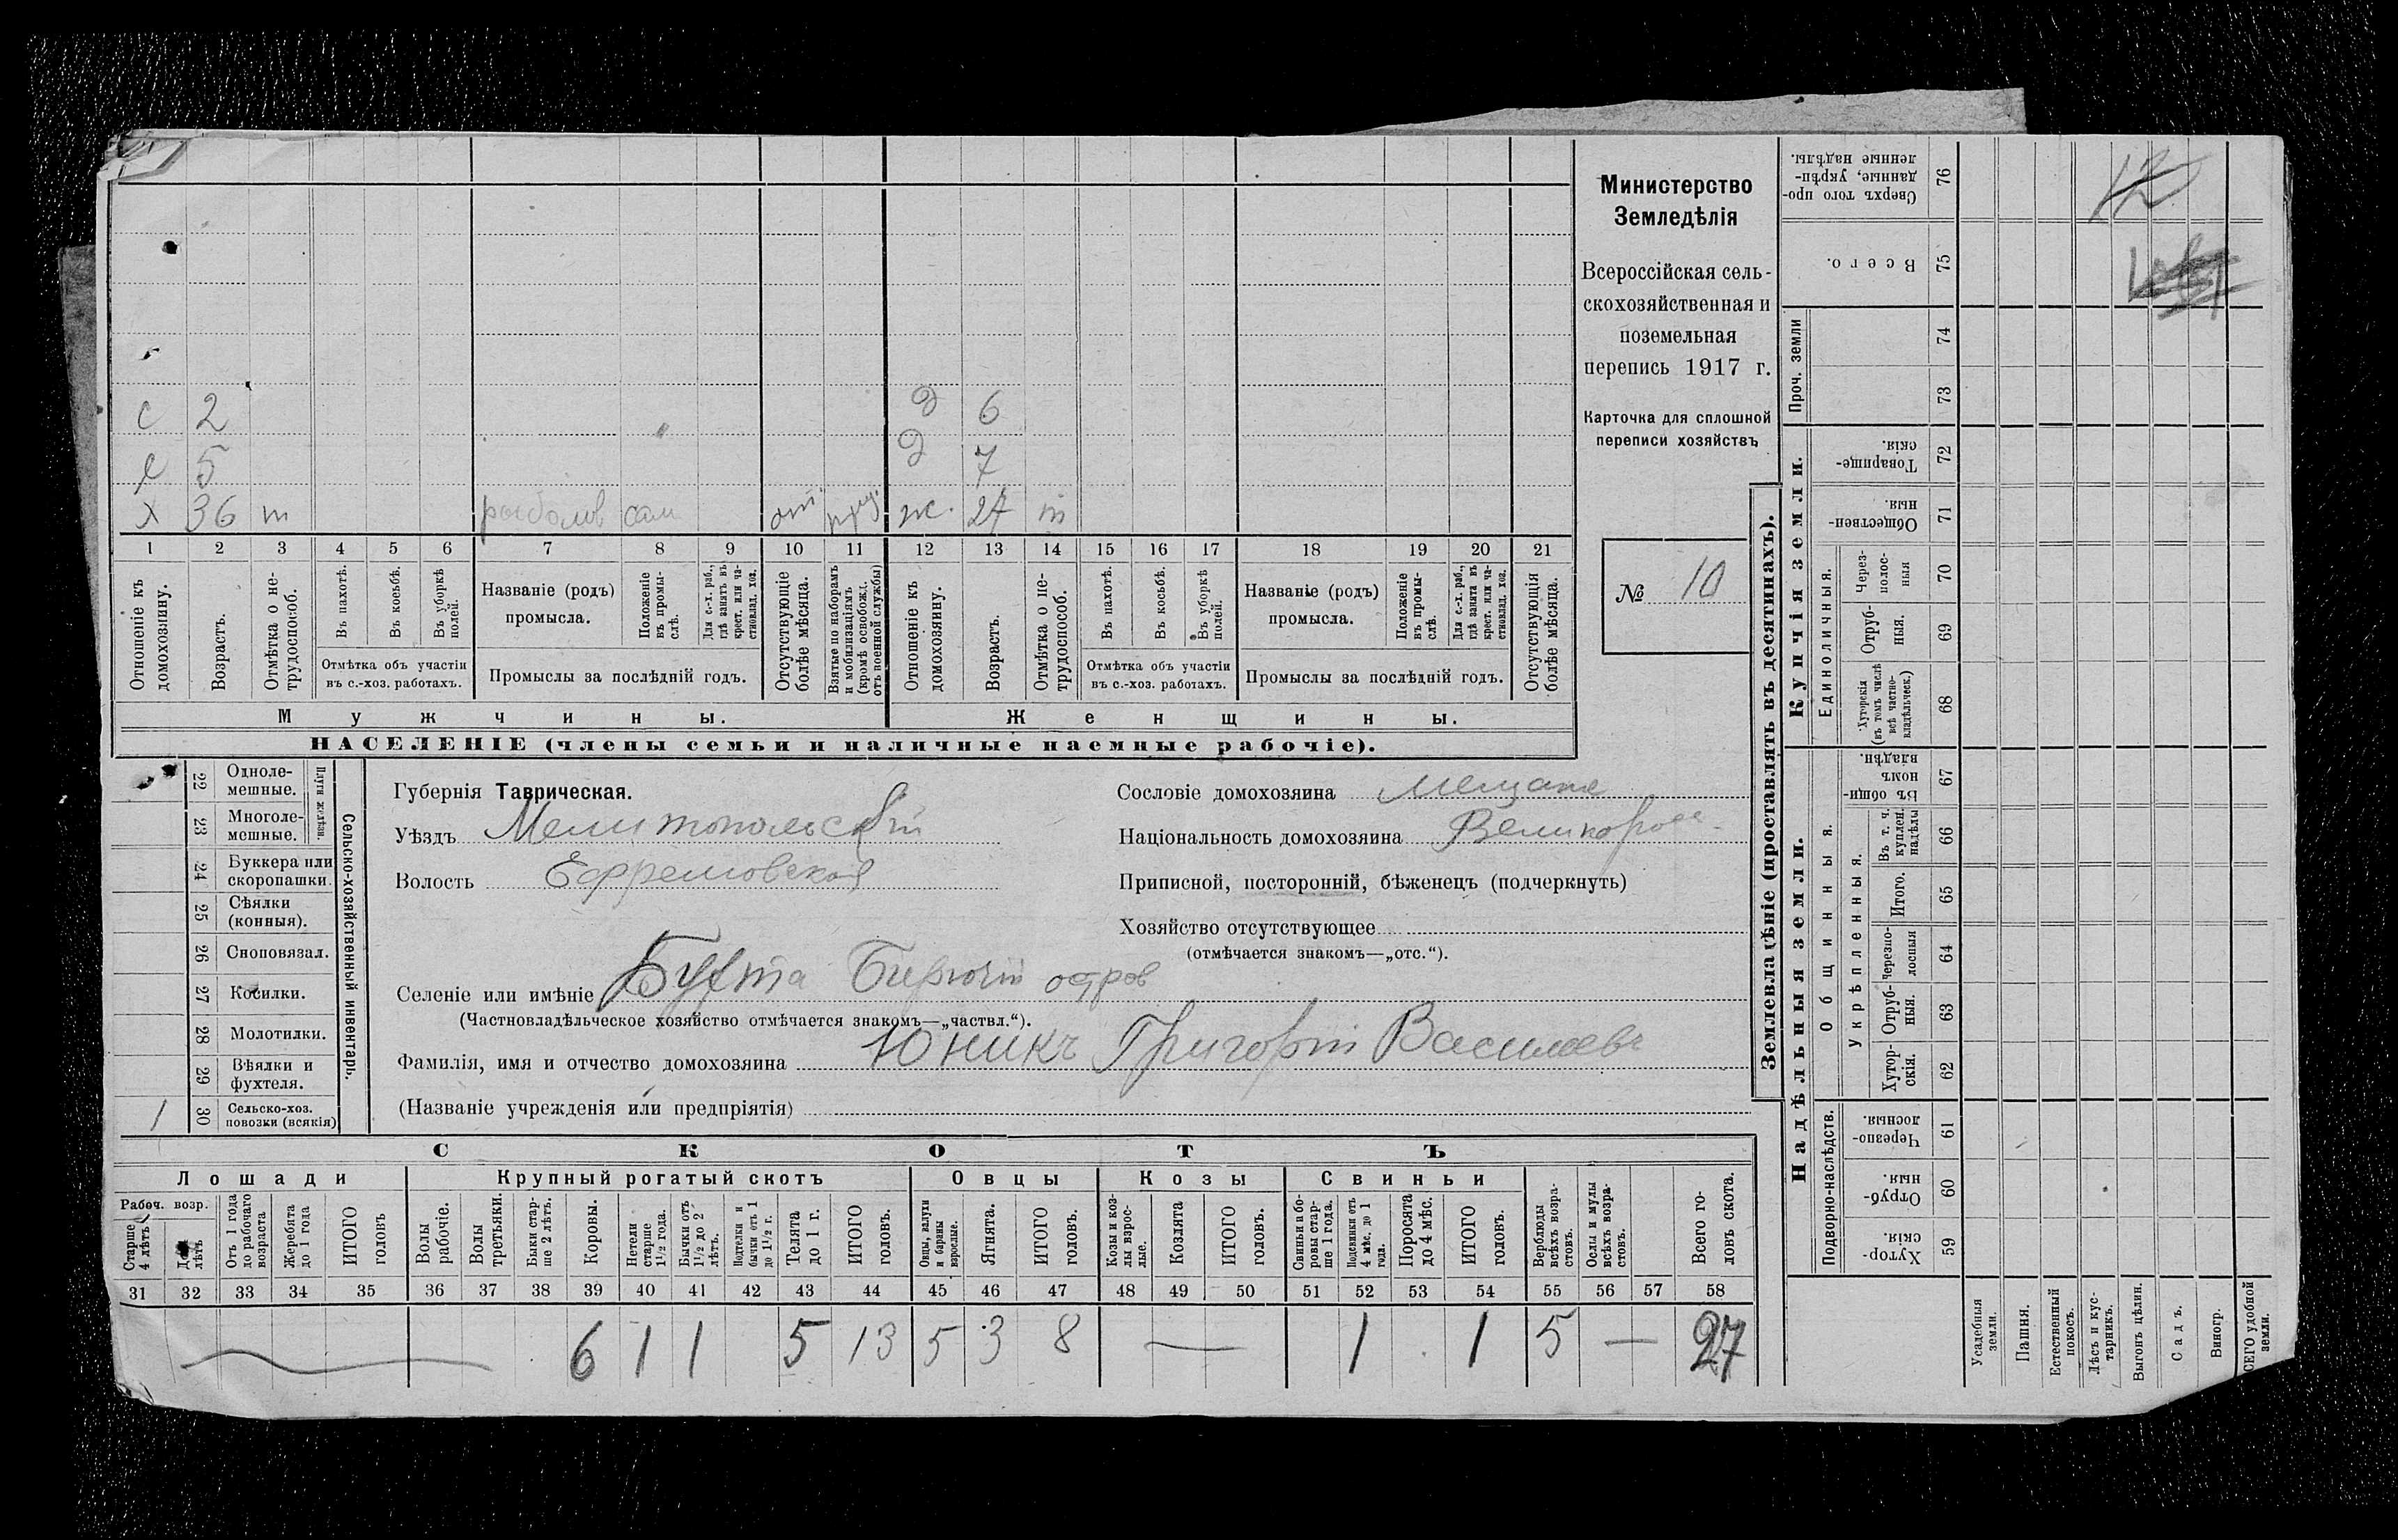 Министерство
Земледѣлія
Всероссійская сель-
скохозяйственная и
поземельная
перепись 1917 г.
Карточка для сплошной
переписи хозяйствъ
№ 10
с 2 д 6
с 5 д 7
х 36 т рыболов сам от. ж. 27 т
1 2 3 4 5 6 7 8 9 10 11 12 13 14 15 16 17 18 19 20 21
Отношеніе къ домохозяину.
Возрастъ.
Отмѣтка о не-трудоспособ.
Въ пахотѣ.
Въ косьбѣ.
Въ уборкѣ полей.
Отмѣтка объ участіи
въ с.-хоз. работахъ.
Названіе (родъ)
промысла.
Положеніе въ промы-слѣ.
Для с.-х. раб., гдѣ занятъ въ крест. или ча-стновлад. хоз.
Промыслы за послѣдній годъ.
Отсутствующіе болѣе мѣсяца.
Взятые по наборамъ и мобилизаціямъ (кромѣ освобожд. отъ военной службы)
Отношеніе къ домохозяину.
Возрастъ.
Отмѣтка о не-трудоспособ.
Въ пахотѣ.
Въ косьбѣ.
Въ уборкѣ полей.
Отмѣтка объ участіи
въ с.-хоз. работахъ.
Названіе (родъ)
промысла.
Положеніе въ промы-слѣ.
Для с.-х. раб., гдѣ занята въ крест. или ча-стновлад. хоз.
Промыслы за послѣдній годъ.
Отсутствующія болѣе мѣсяца.
Мужчины. Женщины.
НАСЕЛЕНІЕ (члены семьи и наличные наемные рабочіе).
Сельско-хозяйственный инвентарь.
Плуги желѣзн.
22 Одноле-мешные.
23 Многоле-мешные.
24 Буккера или скоропашки.
25 Сѣялки (конныя).
26 Сноповязал.
27 Косилки.
28 Молотилки.
29 Вѣялки и фухтеля.
1 30 Сельско-хоз. повозки (всякія)
Губернія Таврическая.
Уѣздъ Мелитопольскій
Волость Ефремовская
Сословіе домохозяина Мещане
Національность домохозяина Великоросс.
Приписной, посторонній, бѣженецъ (подчеркнуть)
Хозяйство отсутствующее
(отмѣчается знакомъ—„отс.“).
Селеніе или имѣніе Бухта Бирючій остров
(Частновладѣльческое хозяйство отмѣчается знакомъ—„частвл.“).
Фамилія, имя и отчество домохозяина Юникъ Григорій Василіевъ
(Названіе учрежденія или предпріятія)
СКОТЪ
Лошади Крупный рогатый скотъ Овцы Козы Свиньи
Рабоч. возр.
Старше 4 лѣтъ
До 4 лѣтъ
Отъ 1 года до рабочаго возраста
Жеребята до 1 года
ИТОГО головъ
Волы рабочіе.
Волы третьяки.
Быки стар-ше 2 лѣтъ.
Коровы.
Нетели старше 1½ года.
Бычки отъ 1½ до 2 лѣтъ.
Подтелки и бычки отъ 1 до 1½ г.
Телята до 1 г.
ИТОГО головъ.
Овцы, валухи и бараны взрослые.
Ягнята.
ИТОГО головъ.
Козы и коз-лы взрос-лые.
Козлята
ИТОГО головъ.
Свиньи и бо-ровы стар-ше 1 года.
Подсвинки отъ 4 мѣс. до 1 года.
Поросята до 4 мѣс.
ИТОГО головъ.
Верблюды всѣхъ возра-стовъ.
Ослы и мулы всѣхъ возра-стовъ.
Всего го-ловъ скота.
31 32 33 34 35 36 37 38 39 40 41 42 43 44 45 46 47 48 49 50 51 52 53 54 55 56 57 58
6 1 1 5 13 5 3 8 — 1 1 5 — 27
Землевладѣніе (проставлять въ десятинахъ).
Надѣльныя земли. Купчія земли. Проч. земли
Подворно-наслѣдств.
Общинныя.
Укрѣпленныя.
Единоличныя.
Хутор-скія. 59
Отруб-ныя. 60
Черезпо-лосныя. 61
Хутор-скія. 62
Отруб-ныя. 63
Черезпо-лосныя 64
Итого. 65
Въ т. ч. куплен. надѣлы 66
Въ общи-номъ владѣн. 67
Хуторскія (въ томъ числѣ всѣ частно-владѣльческ.) 68
Отруб-ныя. 69
Через-полос-ныя 70
Обществен-ныя. 71
Товарище-скія. 72
73
74
Всего. 75
Сверхъ того про-данные, укрѣп-ленные надѣлы. 76
12
Усадебныя земли.
Пашня.
Естественный покосъ.
Лѣсъ и кус-тарникъ.
Выгонъ цѣлин.
Садъ.
Виногр.
ВСЕГО удобной земли.